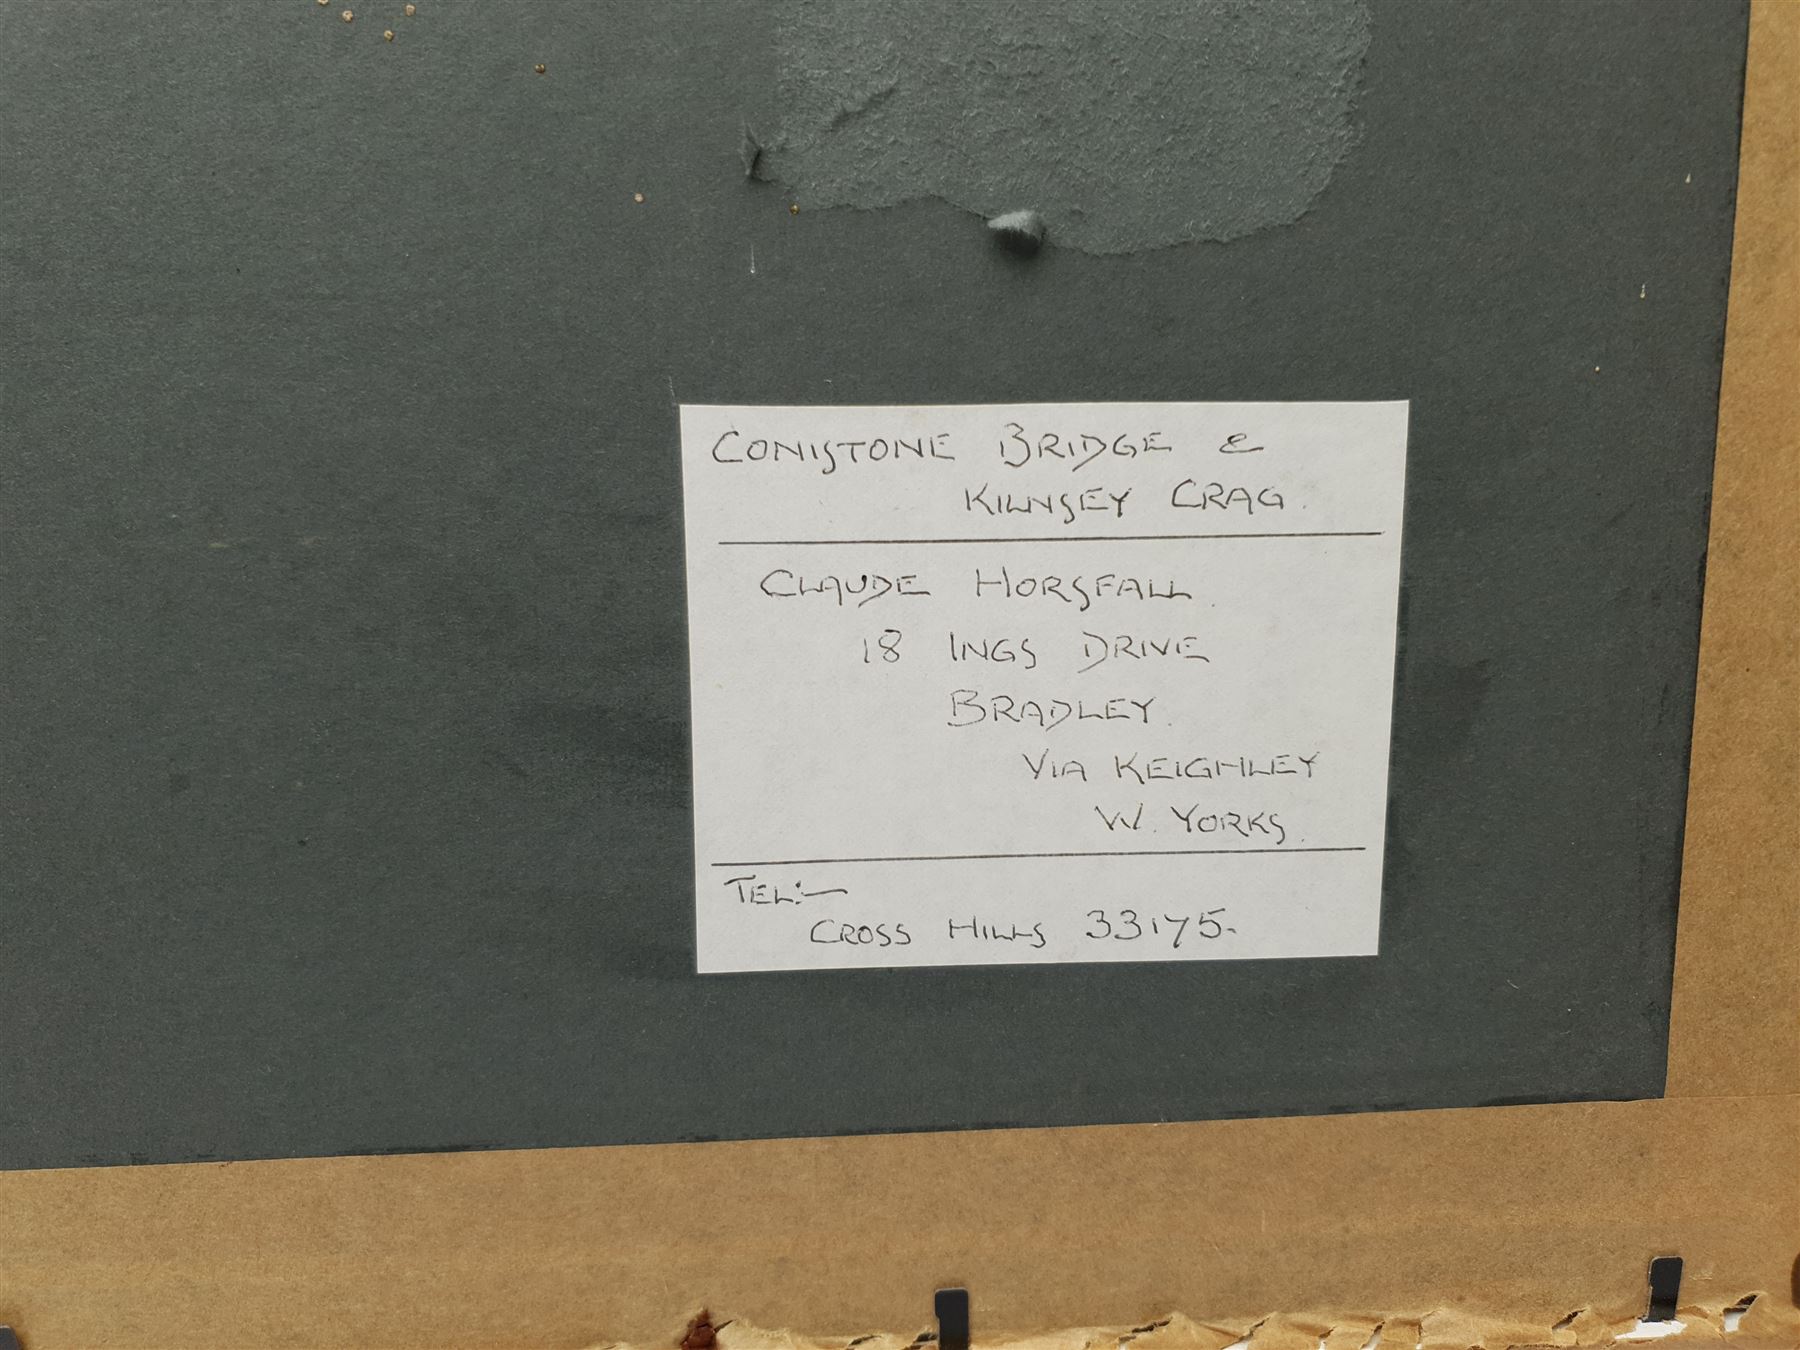 CONISTONE BRIDGE &
KILNSEY CRAG.
CLAUDE HORSFALL.
18 INGS DRIVE
BRADLEY.
VIA KEIGHLEY
W. YORKS.
TEL:—
CROSS HILLS 33175.